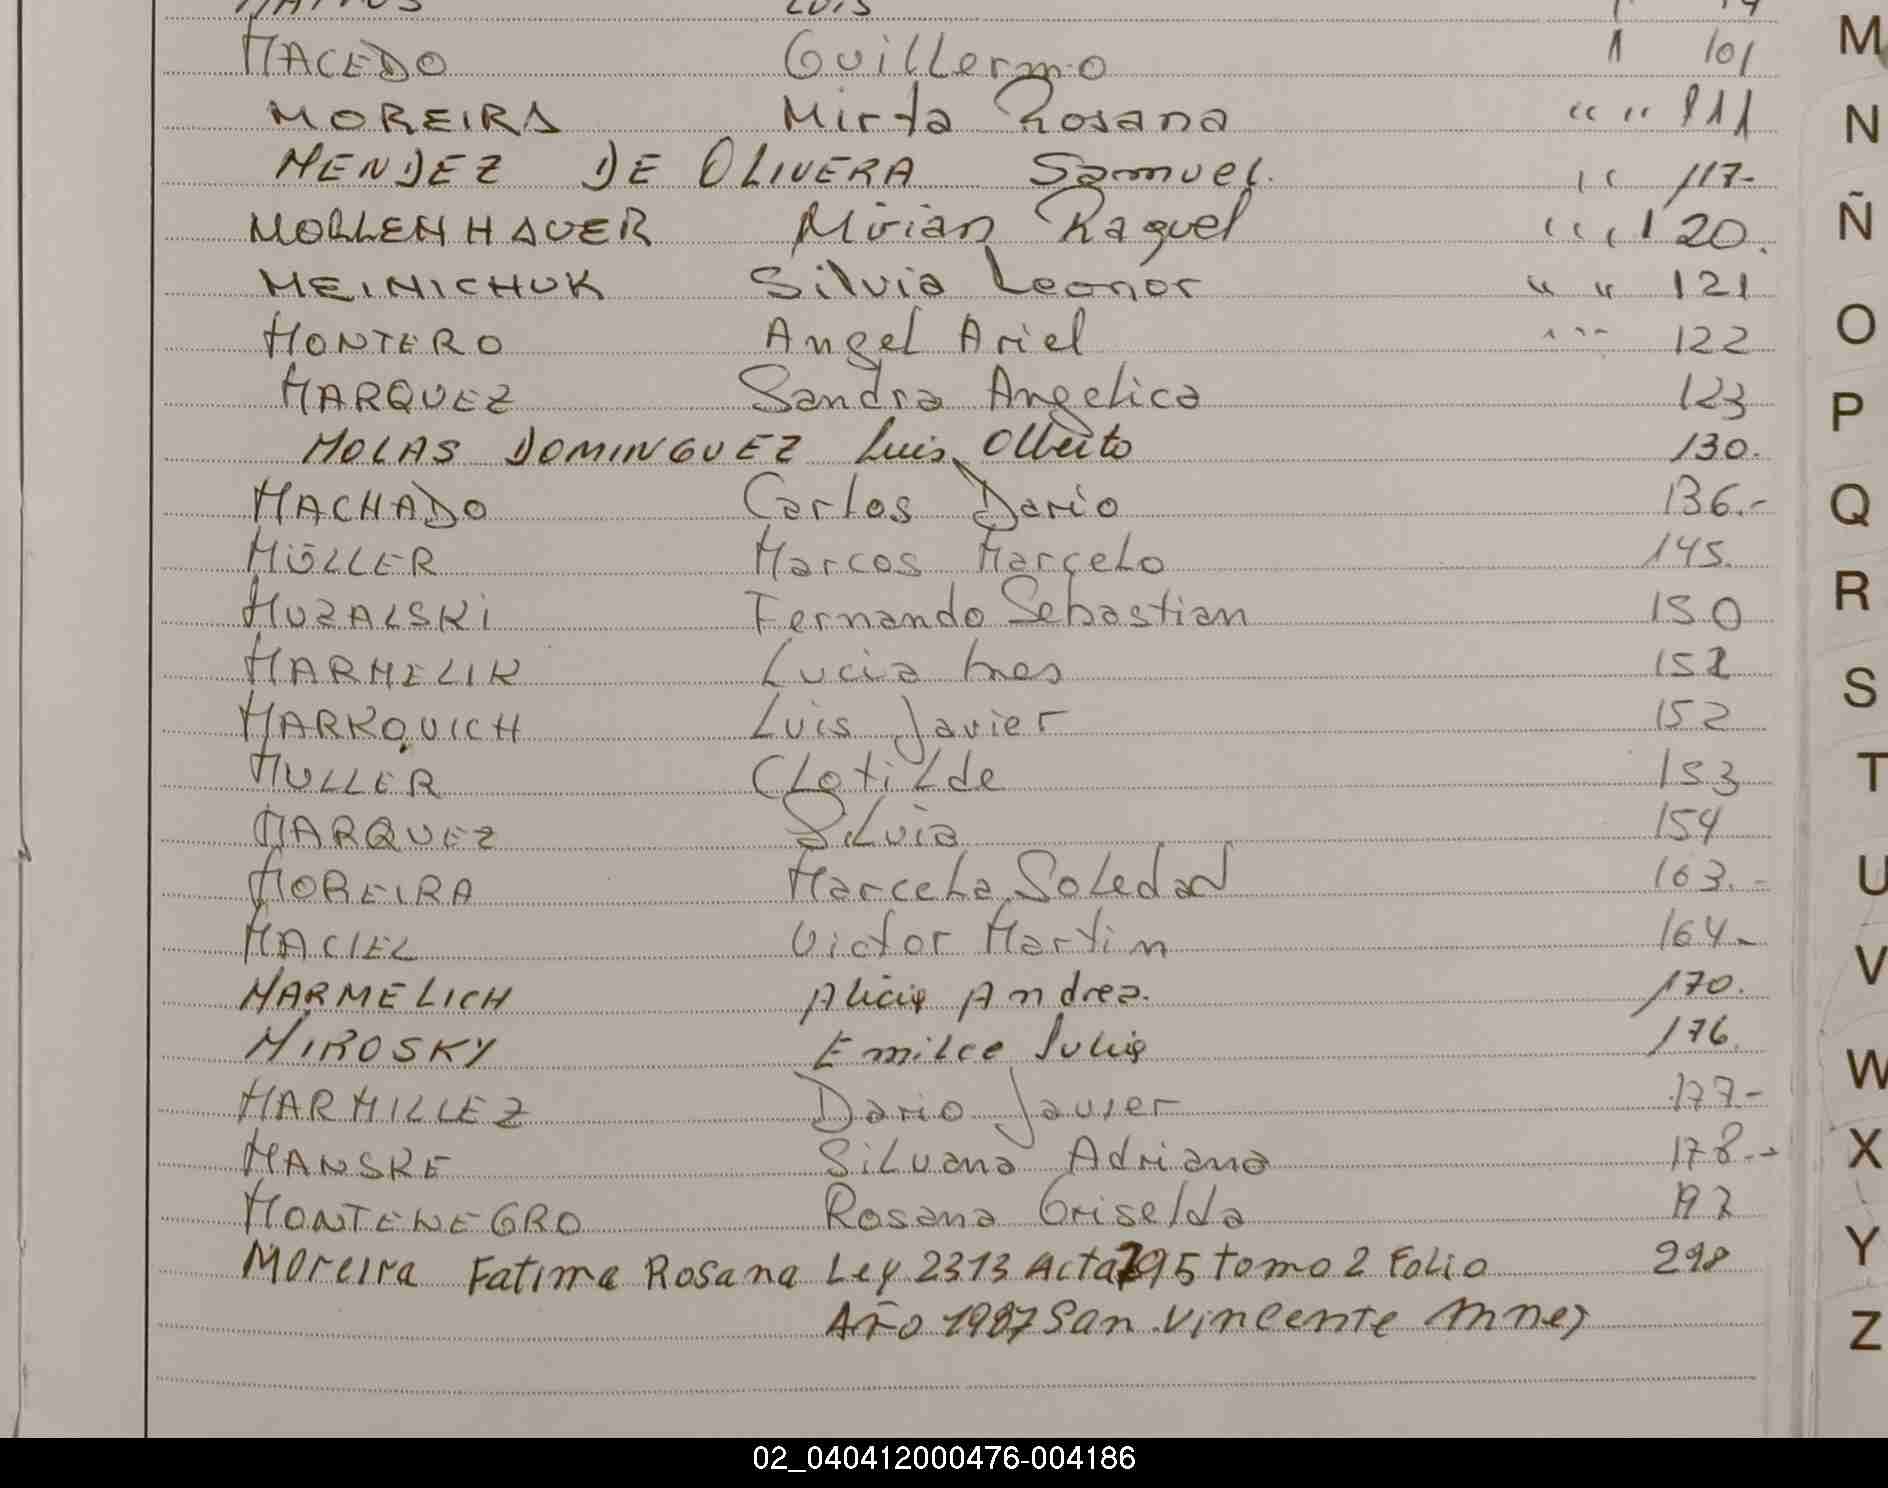 MATTOS Luis
MACEDO Guillermo 1 101
MOREIRA Mirta Rosana " " 111
MENDEZ DE OLIVERA Samuel. " 117-
MOLLENHAUER Mirian Raquel " 120.
MEINICHUK Silvia Leonor " " 121
MONTERO Angel Ariel " 122
MARQUEZ Sandra Angelica 123
MOLAS DOMINGUEZ Luis Alberto 130.
MACHADO Carlos Dario 136.-
MÜLLER Marcos Marcelo 145.
MUZALSKI Fernando Sebastian 150
MARMELIK Lucia Ines 151
MARKOVICH Luis Javier 152
MULLER Clotilde 153
MARQUEZ Silvia 154
MOREIRA Marcela Soledad 163.-
MACIEL Victor Martin 164-
MARMELICH Alicia Andrea. 170.
MIROSKY Emilce Julia 176.
MARMILLEZ Dario Javier 177-
MANSKE Silvana Adriana 178.-
MONTENEGRO Rosana Griselda 192
Moreira Fatima Rosana Ley 2313 Acta 295 tomo 2 Folio 298
Año 1987 San Vincente Mnes
M
N
Ñ
O
P
Q
R
S
T
U
V
W
X
Y
Z
02_040412000476-004186